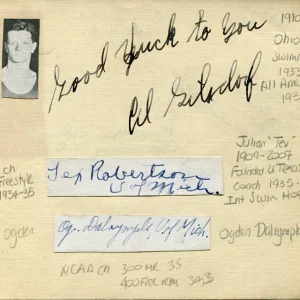 1910
Ohio
Swim
1933
All Am
193
Good Luck to You
Al Gilsdorf
ch
Freestyle
1934-35
Tex Robertson
U of Mich.
Julian "Tex"
1909-2007
Founded U Texas
Coach 1935-
Int Swim Ho
Ogden
Og. Dalrymple, U of Mich.
Ogden Dalrymple
NCAA ch 300 MR 35
400 Free